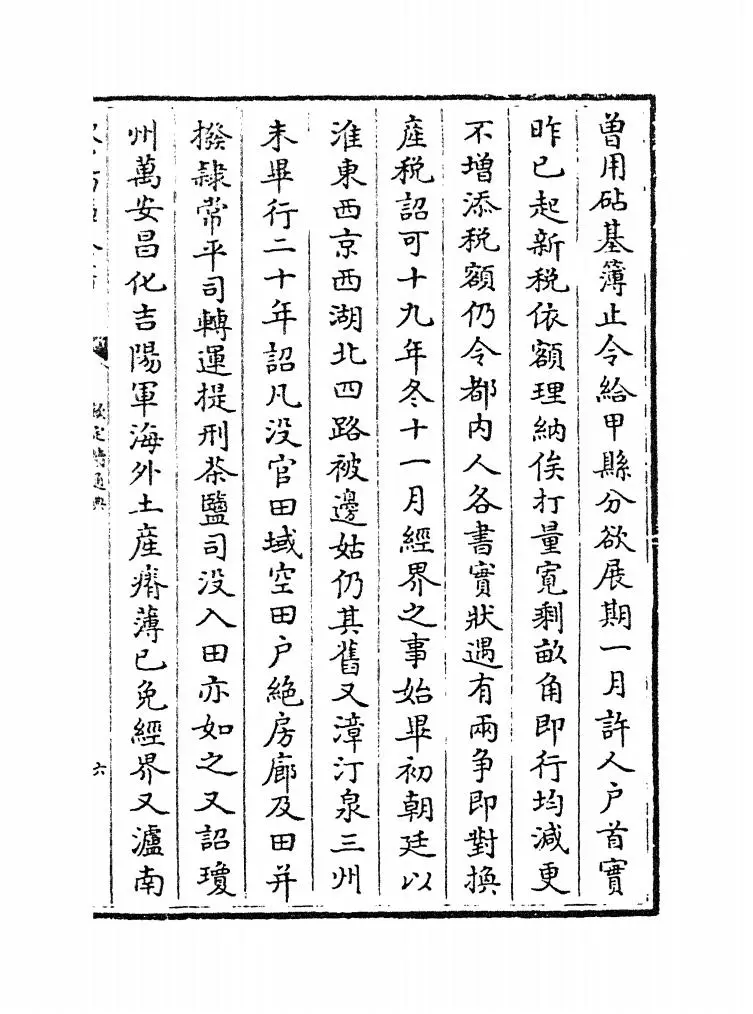 曽用砧基簿止令給甲縣分欲展期一月許人户首實
昨已起新税依額理納俟打量寛剩畝角即行均減更
不增添税額仍令都内人各書實狀遇有兩爭即對換
産税詔可十九年冬十一月經界之事始畢初朝廷以
淮東西京西湖北四路被邊姑仍其舊又漳汀泉三州
未畢行二十年詔凡没官田域空田户絶房廊及田并
撥隷常平司轉運提刑茶鹽司没入田亦如之又詔瓊
州萬安昌化吉陽軍海外土産瘠薄已免經界又瀘南
欽定續通典
六